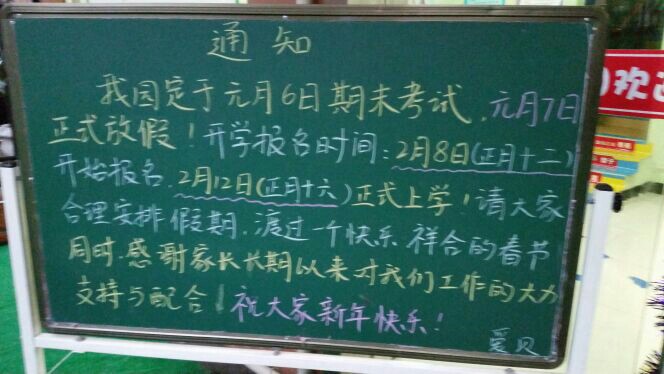 通知
我园定于元月6日期末考试，元月7日
正式放假！开学报名时间：2月8日(正月十二)
开始报名，2月12日(正月十六)正式上学！请大家
合理安排假期，渡过一个快乐祥合的春节
同时，感谢家长长期以来对我们工作的大力
支持与配合！祝大家新年快乐！
爱贝
欢迎